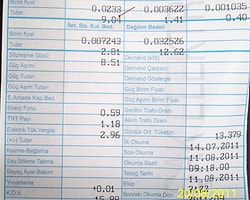 Birim fiyat 0.0233 0.003622 0.001035
Tutar 9.04 1.41 0.40
İlet. Sis. Kul. Bed. Dağıtım Bedeli
Birim fiyat 0.007243 0.032526
Tutar 2.81 12.62
Sözleşme Gücü 8.51 Demand (kW)
Güç Aşımı Demand Çarpanı
Güç Tutarı Demand Gösterge
Güç Aşım Tutarı Güç Aşımı Birim Fiyat
E.Amade Kap.Bed. Gerilim Trafo Oranı
Enerji Fonu 0.59 Akım Trafo Oranı
TRT Payı 1.18 Günlük Ort. Tüketim 13,379
Elektrik Tük.Vergisi 2.96 İlk Okuma 14.07.2011
(+/-) Tutar Son Okuma 11.08.2011
Kesme-Bağlama Okuma Saati 09:18:00
Say.Sökme Takma Tebliğ Tarihi 11.08.2011
Sayaç Ayar-Bakım Ekip
Yuvarlama +0.01 Sonraki Okuma Dön.
K.D.V. 15.88